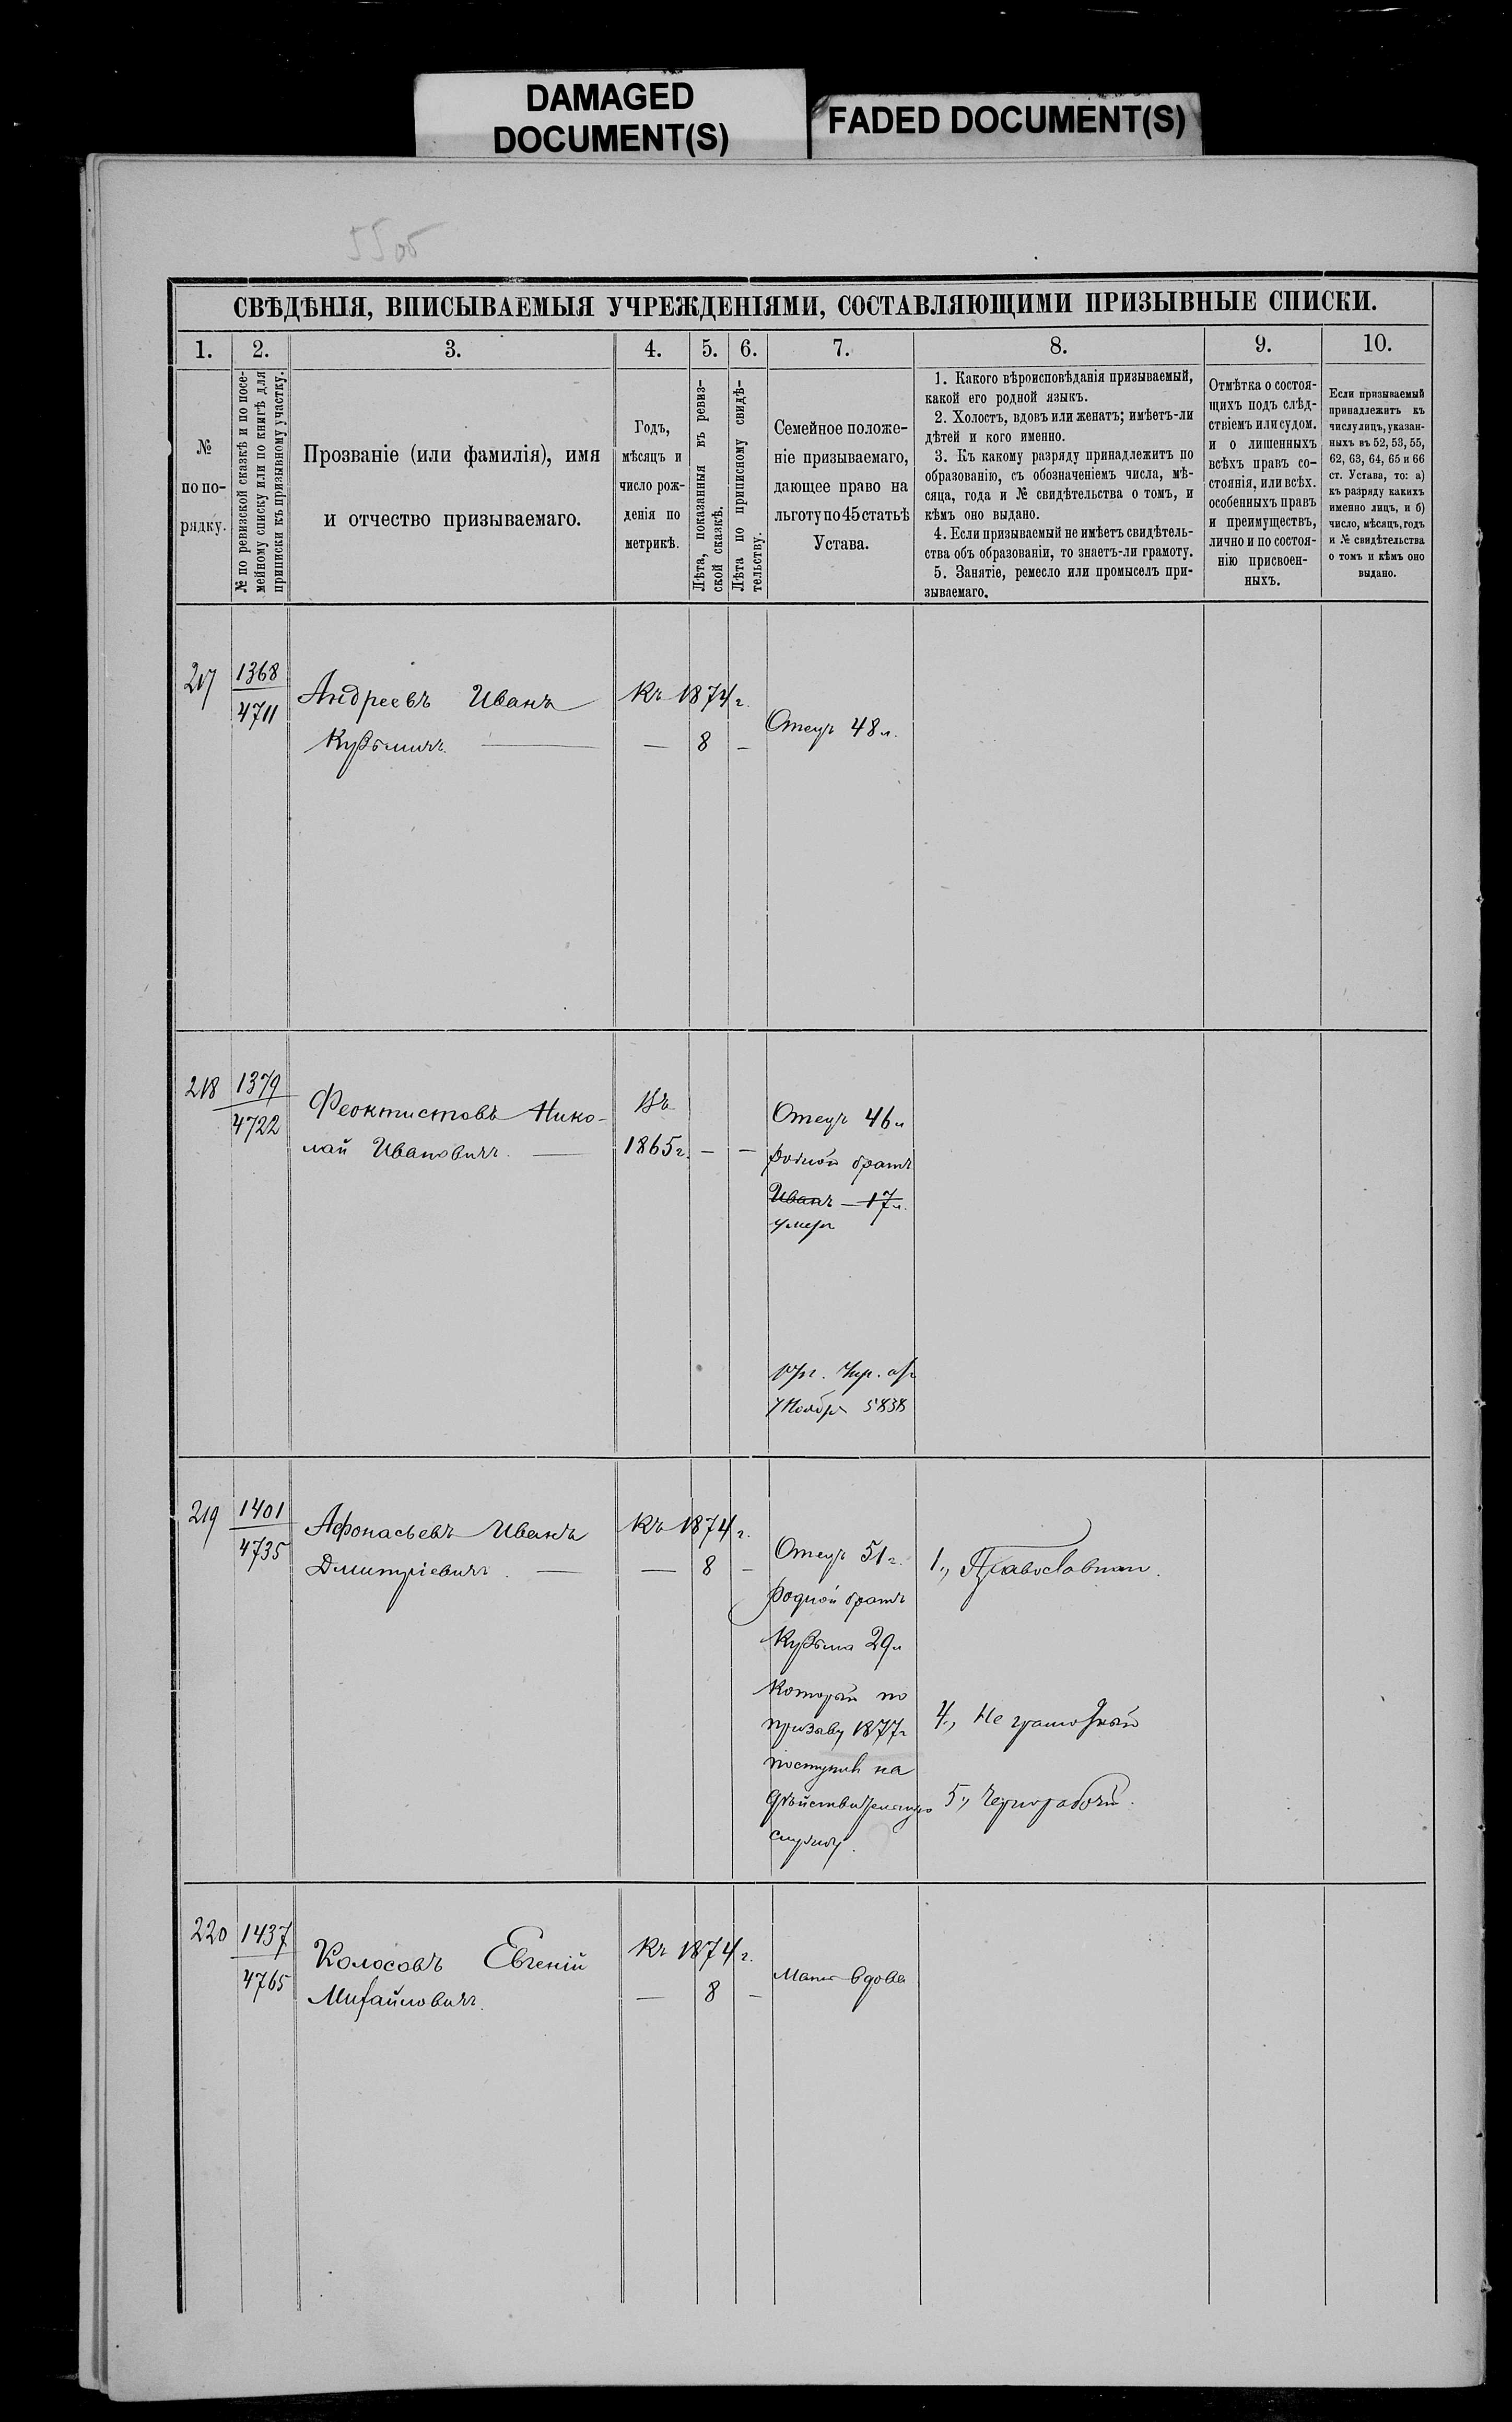 DAMAGED
DOCUMENT(S)
FADED DOCUMENT(S)
55об
СВѢДѢНІЯ, ВПИСЫВАЕМЫЯ УЧРЕЖДЕНІЯМИ, СОСТАВЛЯЮЩИМИ ПРИЗЫВНЫЕ СПИСКИ.
1.
2.
3.
4.
5.
6.
7.
8.
9.
10.
№
по по-
рядку.
№ по ревизской сказкѣ и по посе-
мейному списку или по книгѣ для
приписки къ призывному участку.
Прозваніе (или фамилія), имя
и отчество призываемаго.
Годъ,
мѣсяцъ и
число рож-
денія по
метрикѣ.
Лѣта, показанныя въ ревиз-
ской сказкѣ.
Лѣта по приписному свидѣ-
тельству.
Семейное положе-
ніе призываемаго,
дающее право на
льготу по 45 статьѣ
Устава.
1. Какого вѣроисповѣданія призываемый,
какой его родной языкъ.
2. Холостъ, вдовъ или женатъ; имѣетъ-ли
дѣтей и кого именно.
3. Къ какому разряду принадлежитъ по
образованію, съ обозначеніемъ числа, мѣ-
сяца, года и № свидѣтельства о томъ, и
кѣмъ оно выдано.
4. Если призываемый не имѣетъ свидѣтель-
ства объ образованіи, то знаетъ-ли грамоту.
5. Занятіе, ремесло или промыселъ при-
зываемаго.
Отмѣтка о состоя-
щихъ подъ слѣд-
ствіемъ или судом.
и о лишенныхъ
всѣхъ правъ со-
стоянія, или всѣх.
особенныхъ правъ
и преимуществъ,
лично и по состоя-
нію присвоен-
ныхъ.
Если призываемый
принадлежитъ къ
числу лицъ, указан-
ныхъ въ 52, 53, 55,
62, 63, 64, 65 и 66
ст. Устава, то: а)
къ разряду какихъ
именно лицъ, и б)
число, мѣсяцъ, годъ
и № свидѣтельства
о томъ и кѣмъ оно
выдано.
217
1368
4711
Андреевъ Иванъ
Кузьмичъ.
Къ 1874 г.
— 8 —
Отецъ 48 л.
218
1379
4722
Феоктистовъ Нико-
лай Ивановичъ.
Въ
1865 г. — —
Отецъ 46 л
родной братъ
Иванъ — 17 л.
умеръ
7 Ноября 5838
219
1401
4735
Афонасьевъ Иванъ
Дмитріевичъ.
Къ 1874 г.
— 8 —
Отецъ 51 г.
родной братъ
Кузьма 29 л
который по
призыву 1877 г
поступилъ на
дѣйствительную
службу.
1., Православнаго.
4., Не грамотный
5., Чернорабочій.
220
1437
4765
Колосовъ Евгеній
Михайловичъ.
Къ 1874 г.
— 8 —
Мать вдова